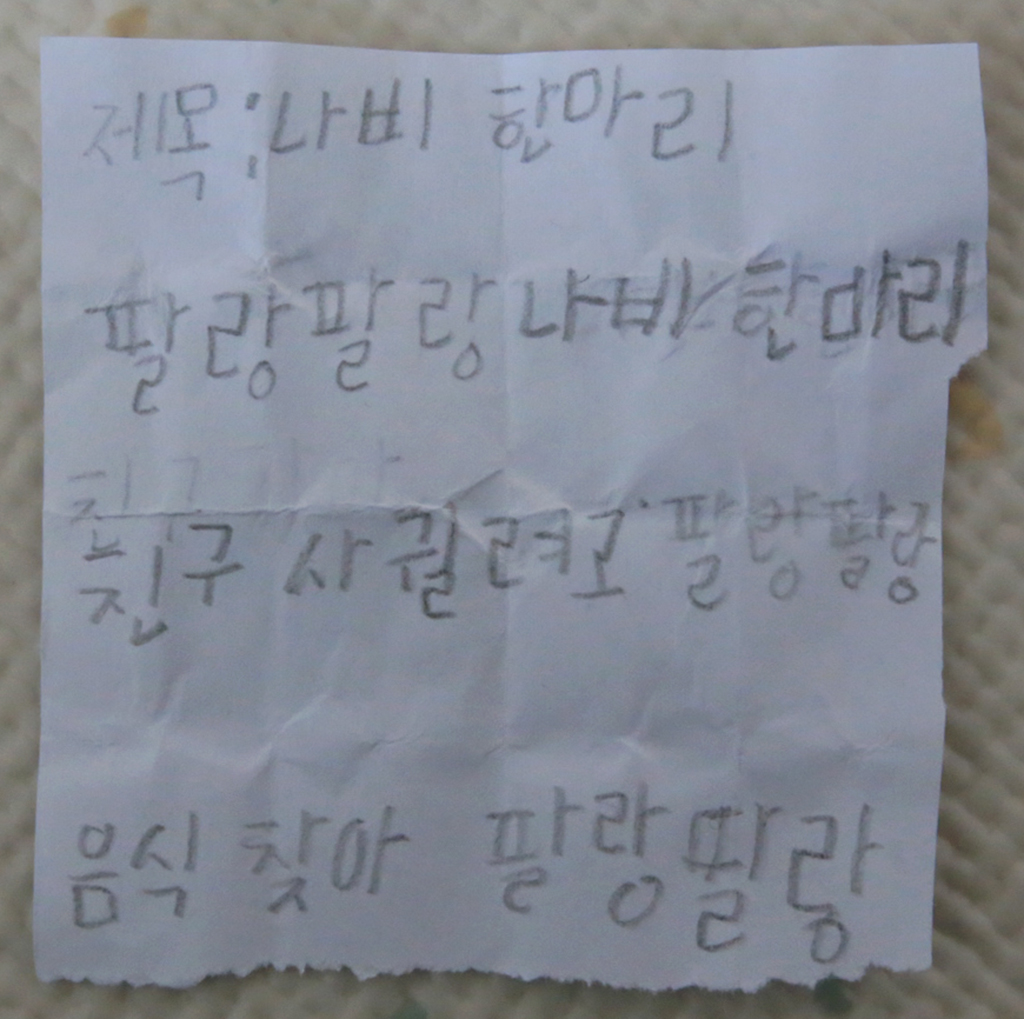 제목:나비 한마리
팔랑팔랑 나비 한마리
친구 사귈려고 팔랑팔랑
음식 찾아 팔랑팔랑